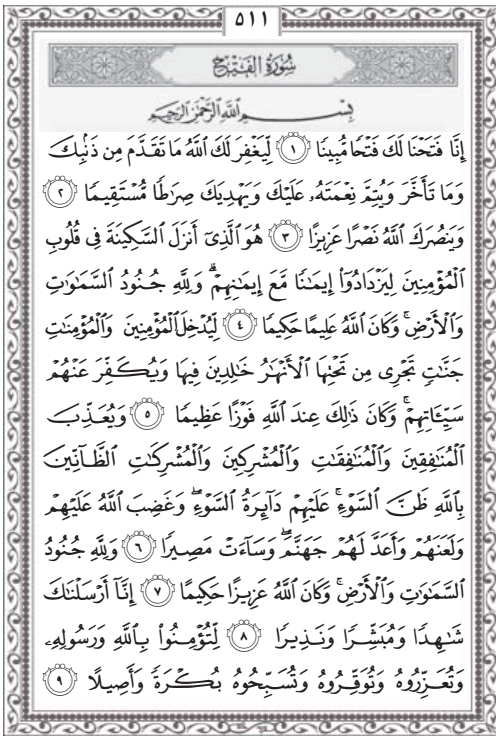 ٥١١
سُورَةُ الفَتْحِ
بِسْمِ اللَّهِ الرَّحْمَٰنِ الرَّحِيمِ
إِنَّا فَتَحْنَا لَكَ فَتْحًا مُّبِينًا ١ لِّيَغْفِرَ لَكَ ٱللَّهُ مَا تَقَدَّمَ مِن ذَنۢبِكَ
وَمَا تَأَخَّرَ وَيُتِمَّ نِعْمَتَهُۥ عَلَيْكَ وَيَهْدِيَكَ صِرَٰطًا مُّسْتَقِيمًا ٢
وَيَنصُرَكَ ٱللَّهُ نَصْرًا عَزِيزًا ٣ هُوَ ٱلَّذِىٓ أَنزَلَ ٱلسَّكِينَةَ فِى قُلُوبِ
ٱلْمُؤْمِنِينَ لِيَزْدَادُوٓا۟ إِيمَٰنًا مَّعَ إِيمَٰنِهِمْ ۗ وَلِلَّهِ جُنُودُ ٱلسَّمَٰوَٰتِ
وَٱلْأَرْضِ ۚ وَكَانَ ٱللَّهُ عَلِيمًا حَكِيمًا ٤ لِّيُدْخِلَ ٱلْمُؤْمِنِينَ وَٱلْمُؤْمِنَٰتِ
جَنَّٰتٍ تَجْرِى مِن تَحْتِهَا ٱلْأَنْهَٰرُ خَٰلِدِينَ فِيهَا وَيُكَفِّرَ عَنْهُمْ
سَيِّـَٔاتِهِمْ ۚ وَكَانَ ذَٰلِكَ عِندَ ٱللَّهِ فَوْزًا عَظِيمًا ٥ وَيُعَذِّبَ
ٱلْمُنَٰفِقِينَ وَٱلْمُنَٰفِقَٰتِ وَٱلْمُشْرِكِينَ وَٱلْمُشْرِكَٰتِ ٱلظَّآنِّينَ
بِٱللَّهِ ظَنَّ ٱلسَّوْءِ ۚ عَلَيْهِمْ دَآئِرَةُ ٱلسَّوْءِ ۖ وَغَضِبَ ٱللَّهُ عَلَيْهِمْ
وَلَعَنَهُمْ وَأَعَدَّ لَهُمْ جَهَنَّمَ ۖ وَسَآءَتْ مَصِيرًا ٦ وَلِلَّهِ جُنُودُ
ٱلسَّمَٰوَٰتِ وَٱلْأَرْضِ ۚ وَكَانَ ٱللَّهُ عَزِيزًا حَكِيمًا ٧ إِنَّآ أَرْسَلْنَٰكَ
شَٰهِدًا وَمُبَشِّرًا وَنَذِيرًا ٨ لِّتُؤْمِنُوا۟ بِٱللَّهِ وَرَسُولِهِۦ
وَتُعَزِّرُوهُ وَتُوَقِّرُوهُ وَتُسَبِّحُوهُ بُكْرَةً وَأَصِيلًا ٩